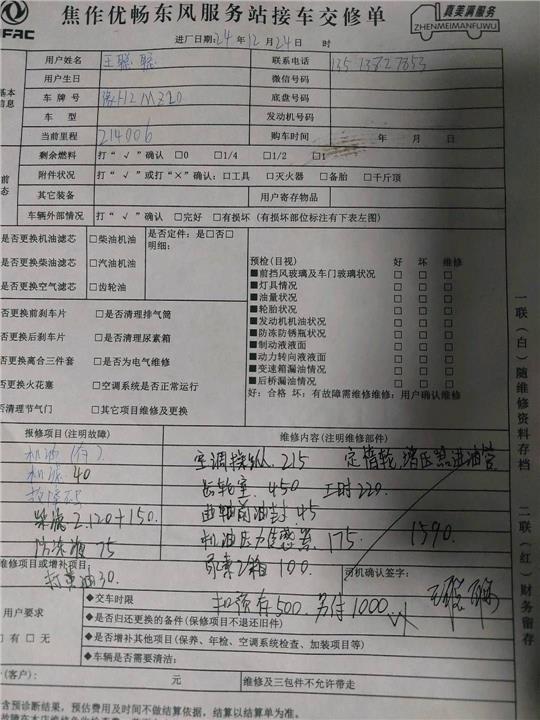 FAC
焦作优畅东风服务站接车交修单
真美满服务
ZHENMEIMANFUWU
进厂日期:24年12月24日 时
用户姓名 王聪聪 联系电话 13513827853
用户生日 微信号码
基本
信息
车牌号 豫H2M3Z0 底盘号码
车 型 发动机号码
当前里程 214006 购车时间 年 月 日
剩余燃料 打“√”确认 □0 □1/4 □1/2 □1
前
态
附件状况 打“√”或打“×”确认:□工具 □灭火器 □备胎 □千斤顶
其它装备 用户寄存物品
车辆外部情况 打“√”确认 □完好 □有损坏 (有损坏部位标注有下表左图)
是否更换机油滤芯 □柴油机油 是否定件:是□否□
明细:
是否更换柴油滤芯 □汽油机油
是否更换空气滤芯 □齿轮油
预检(目视) 好 坏 维修
■前挡风玻璃及车门玻璃状况 □ □ □
■灯具情况 □ □ □
■油量状况 □ □ □
■轮胎状况 □ □ □
■发动机机油状况 □ □ □
■防冻防锈瓶状况 □ □ □
■制动液液面 □ □ □
■动力转向液液面 □ □ □
■变速箱漏油情况 □ □ □
■后桥漏油情况 □ □ □
好:合格 坏:有故障需维修维修:用户确认维修
否更换前刹车片 □是否清理排气筒
否更换后刹车片 □是否清理尿素箱
否更换离合三件套 □是否为电气维修
否更换火花塞 □空调系统是否正常运行
否清理节气门 □其它项目维修及更换
报修项目(注明故障) 维修内容(注明维修部件)
机油(有) 空调操纵 215 定惰轮,增压器进油管
机滤 40 齿轮室 450 工时220
柴滤 2.120+150 曲轴前油封 45
防冻液 75 机油压力传感器 175 1590
尿素箱 100
维修项目或增补项目: 司机确认签字:
打黄油30 王聪聪
用户要求
有 □ 无
◆交车时限 扣预存500 另付1000
◆是否归还更换的备件(保修项目不退还旧件)
◆是否增补其他项目(保养、年检、空调系统检查、加装项目等)
◆车辆是否需要清洁:
(客户): 元 维修及三包件不允许带走
含预诊断结果,预估费用及时间不做结算依据,结算以结算单为准。
一联(白)随维修资料存档
二联(红)财务留存